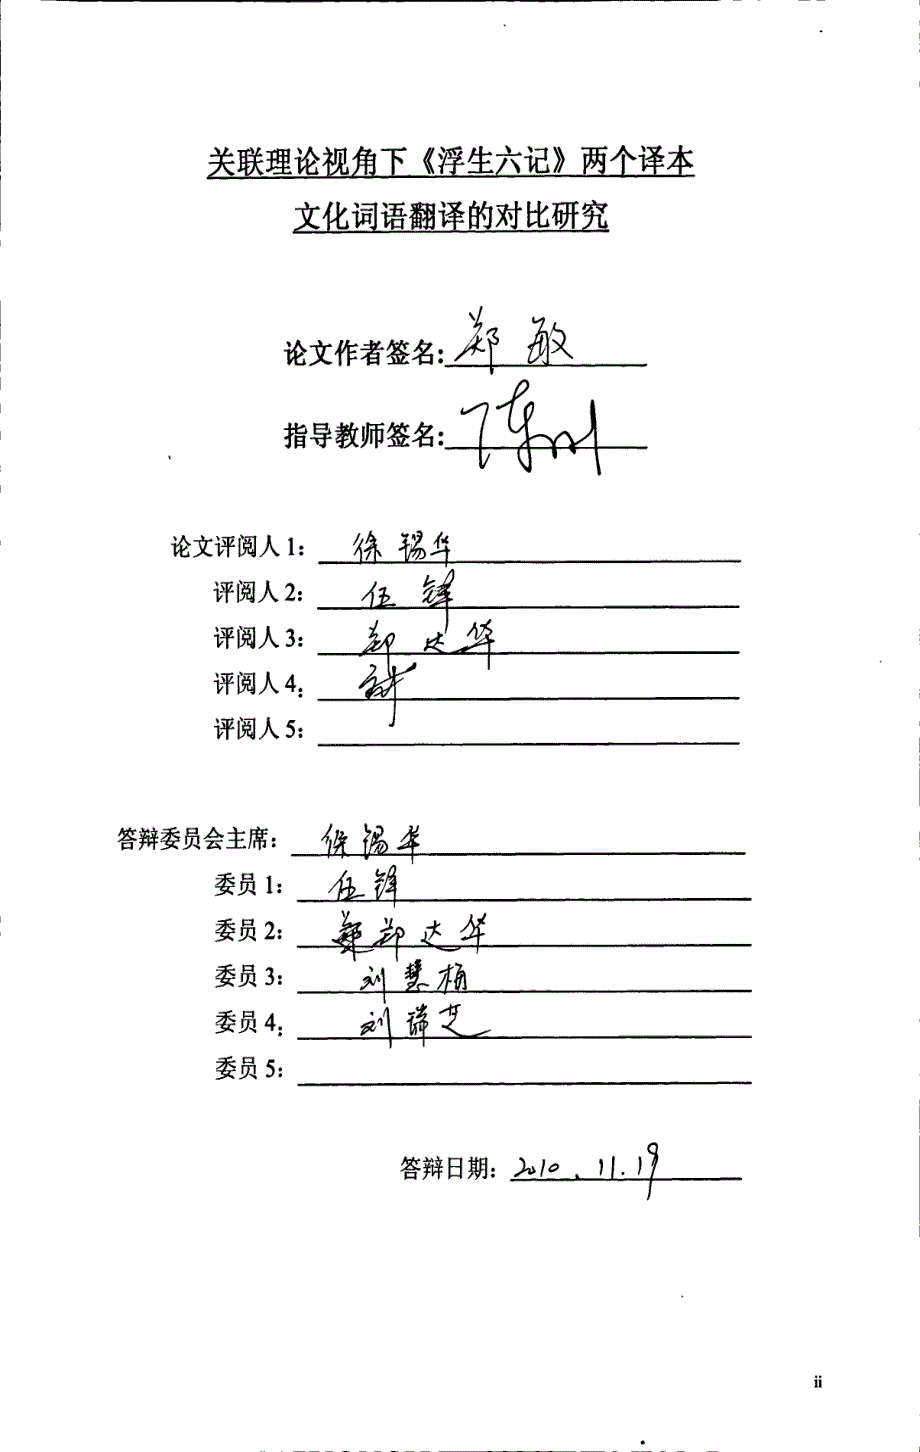 关联理论视角下《浮生六记》两个译本
文化词语翻译的对比研究
论文作者签名: 郑敏
指导教师签名: 陈刚
论文评阅人1: 徐锡华
评阅人2: 伍锋
评阅人3: 郑达华
评阅人4:
评阅人5:
答辩委员会主席: 徐锡华
委员1: 伍锋
委员2: 郑达华
委员3: 刘慧梅
委员4: 刘瑞芝
委员5:
答辩日期: 2010.11.19
ii